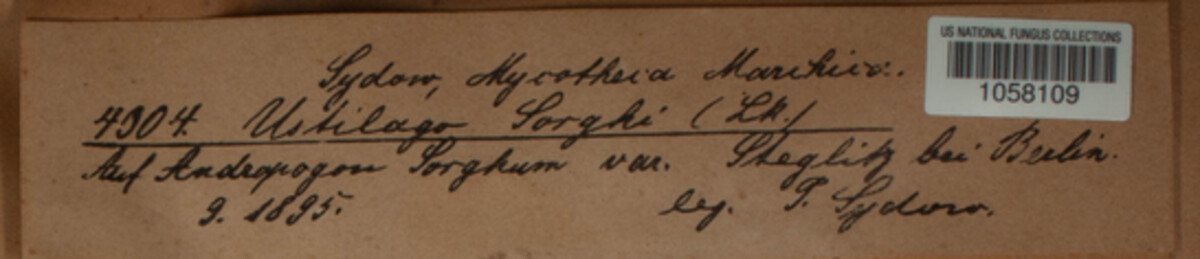 Sydow, Mycotheca Marchica.
4304. Ustilago Sorghi (Lk.)
Auf Andropogon Sorghum var. Steglitz bei Berlin.
9. 1895. leg. P. Sydow.
US NATIONAL FUNGUS COLLECTIONS
1058109